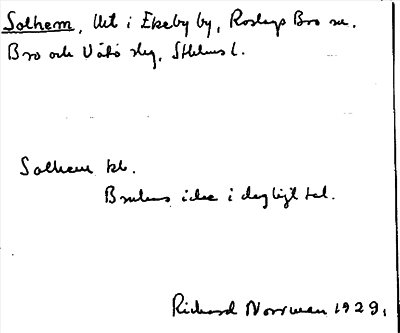 Solhem, Utt i Ekeby by, Roslags Bro sn.
Bro och Vätö skg, Sthlms l.
Solhem kb.
Brukas icke i dagligt tal.
Richard Norrman 1929.